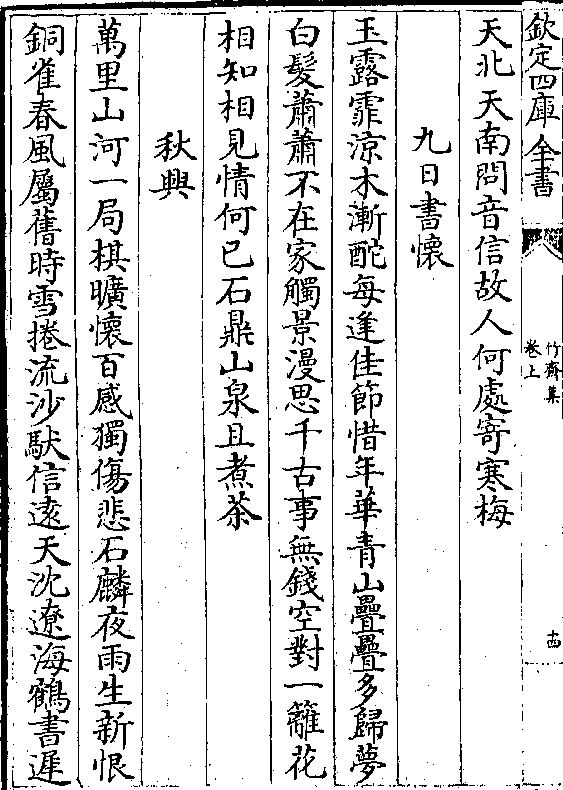 欽定四庫全書
竹齋集
卷上
十四
天北天南問音信故人何處寄寒梅
九日書懷
玉露霏涼木漸酡每逢佳節惜年華青山疊疊多歸夢
白髮蕭蕭不在家觸景漫思千古事無錢空對一籬花
相知相見情何已石鼎山泉且煮茶
秋興
萬里山河一局棋曠懷百感獨傷悲石麟夜雨生新恨
銅雀春風屬舊時雪捲流沙馱信遠天沈遼海鶴書遲